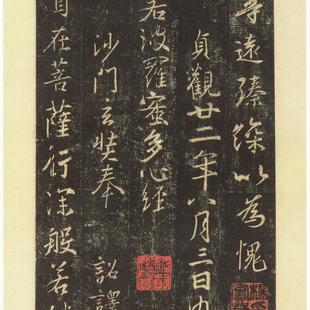 尋遠臻深以為愧
貞觀廿二年八月三日内
若波羅蜜多心經
沙門玄奘奉　詔譯
自在菩薩行深般若